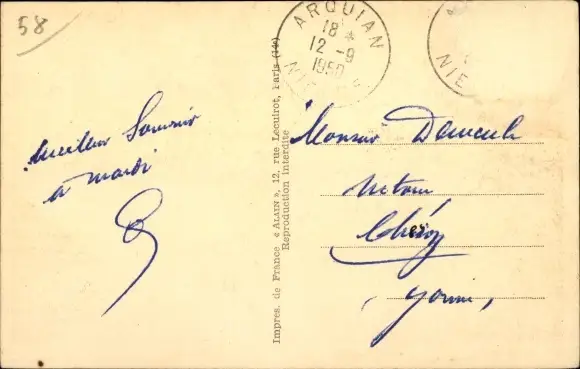 58
ARQUIAN
18 *
12 - 9
1950
NIE
NIE
Meilleur Souvenir
a mardi
Impres. de France « ALAIN », 12, rue Lecuirot, Paris (14e)
Reproduction interdite
Monsieur
Chéroy
Yonne,